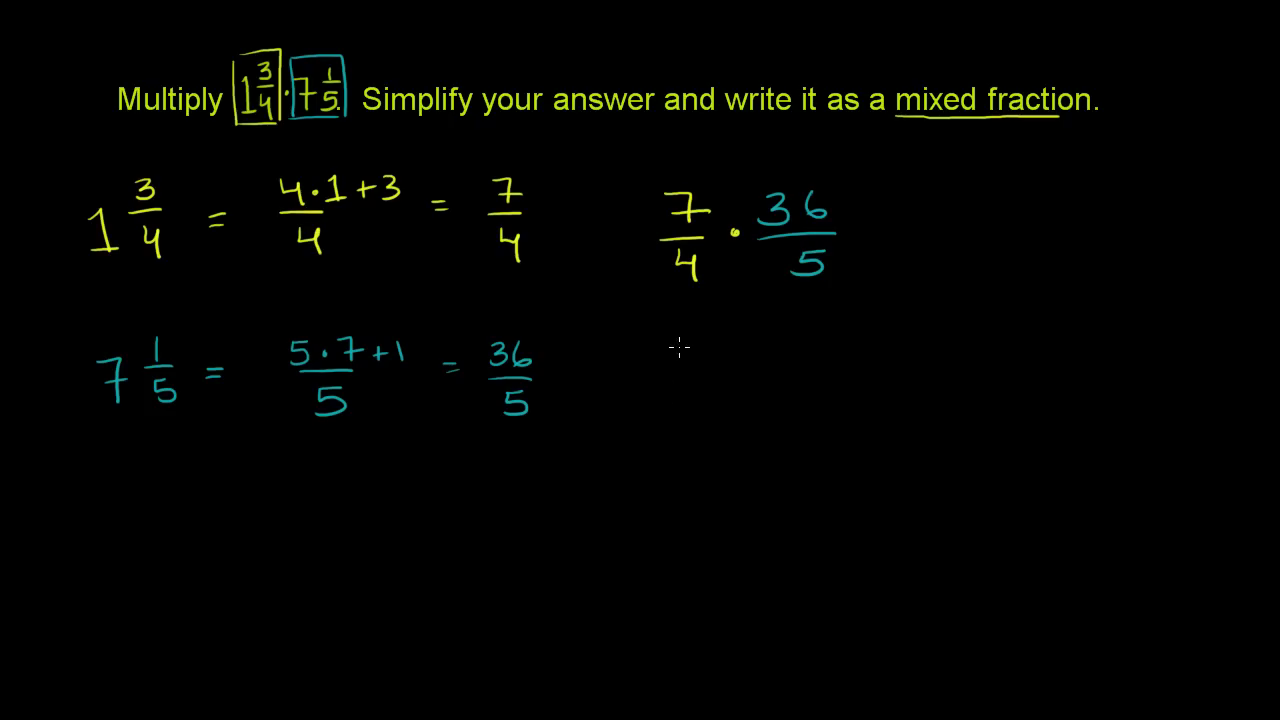 Multiply 1 3/4 · 7 1/5. Simplify your answer and write it as a mixed fraction.
1 3/4 = 4·1+3/4 = 7/4
7/4 · 36/5
7 1/5 = 5·7+1/5 = 36/5